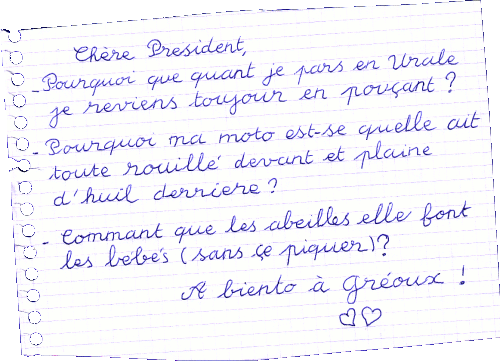 Chère President,
- Pourquoi que quant je pars en Urale
je reviens toujour en pouçant ?
- Pourquoi ma moto est-se quelle ait
toute rouillé devant et plaine
d'huil derriere ?
- Commant que les abeilles elle font
les bébés (sans çe piquer) ?
A biento à Gréoux !